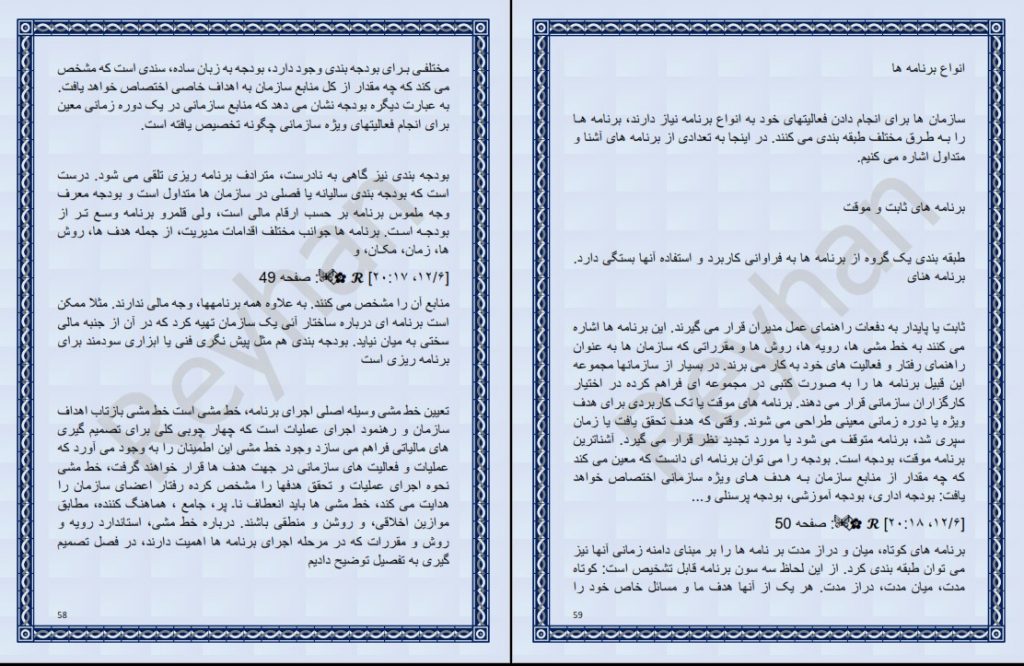 مختلفی برای بودجه بندی وجود دارد، بودجه به زبان ساده، سندی است که مشخص
می کند که چه مقدار از کل منابع سازمان به اهداف خاصی اختصاص خواهد یافت.
به عبارت دیگره بودجه نشان می دهد که منابع سازمانی در یک دوره زمانی معین
برای انجام فعالیتهای ویژه سازمانی چگونه تخصیص یافته است.
بودجه بندی نیز گاهی به نادرست، مترادف برنامه ریزی تلقی می شود. درست
است که بودجه بندی سالیانه یا فصلی در سازمان ها متداول است و بودجه معرف
وجه ملموس برنامه بر حسب ارقام مالی است، ولی قلمرو برنامه وسع تر از
بودجه است. برنامه ها جوانب مختلف اقدامات مدیریت، از جمله هدف ها، روش
ها، زمان، مکان، و
[۱۲/۶، ۲۰:۱۷] R ✿🦋: صفحه 49
منابع آن را مشخص می کنند. به علاوه همه برنامهها، وجه مالی ندارند. مثلا ممکن
است برنامه ای درباره ساختار آتی یک سازمان تهیه کرد که در آن از جنبه مالی
سختی به میان نیاید. بودجه بندی هم مثل پیش نگری فنی یا ابزاری سودمند برای
برنامه ریزی است
تعیین خط مشی وسیله اصلی اجرای برنامه، خط مشی است خط مشی بازتاب اهداف
سازمان و رهنمود اجرای عملیات است که چهار چوبی کلی برای تصمیم گیری
های مالیاتی فراهم می سازد وجود خط مشی این اطمینان را به وجود می آورد که
عملیات و فعالیت های سازمانی در جهت هدف ها قرار خواهند گرفت، خط مشی
نحوه اجرای عملیات و تحقق هدفها را مشخص کرده رفتار اعضای سازمان را
هدایت می کند، خط مشی ها باید انعطاف نا. پر، جامع ، هماهنگ کننده، مطابق
موازین اخلاقی، و روشن و منطقی باشند. درباره خط مشی، استاندارد رویه و
روش و مقررات که در مرحله اجرای برنامه ها اهمیت دارند، در فصل تصمیم
گیری به تفصیل توضیح دادیم
58
انواع برنامه ها
سازمان ها برای انجام دادن فعالیتهای خود به انواع برنامه نیاز دارند، برنامه ها
را به طرق مختلف طبقه بندی می کنند. در اینجا به تعدادی از برنامه های آشنا و
متداول اشاره می کنیم.
برنامه های ثابت و موقت
طبقه بندی یک گروه از برنامه ها به فراوانی کاربرد و استفاده آنها بستگی دارد.
برنامه هنای
ثابت یا پایدار به دفعات راهنمای عمل مدیران قرار می گیرند. این برنامه ها اشاره
می کنند به خط مشی ها، رویه ها، روش ها و مقرراتی که سازمان ها به عنوان
راهنمای رفتار و فعالیت های خود به کار می برند. در بسیار از سازمانها مجموعه
این قبیل برنامه ها را به صورت کتبی در مجموعه ای فراهم کرده در اختیار
کارگزاران سازمانی قرار می دهند. برنامه های موقت یا تک کاربردی برای هدف
ویژه یا دوره زمانی معینی طراحی می شوند. وقتی که هدف تحقق یافت یا زمان
سپری شد، برنامه متوقف می شود یا مورد تجدید نظر قرار می گیرد. آشناترین
برنامه موقت، بودجه است. بودجه را می توان برنامه ای دانست که معین می کند
که چه مقدار از منابع سازمان به هدف های ویژه سازمانی اختصاص خواهد
یافت: بودجه اداری، بودجه آموزشی، بودجه پرسنلی و...
[۱۲/۶، ۲۰:۱۸] R ✿🦋: صفحه 50
برنامه های کوتاه، میان و دراز مدت بر نامه ها را بر مبنای دامنه زمانی آنها نیز
می توان طبقه بندی کرد. از این لحاظ سه سون برنامه قابل تشخیص است: کوتاه
مدت، میان مدت، دراز مدت. هر یک از آنها هدف ما و مسائل خاص خود را
59
Reyhan
Reyhan